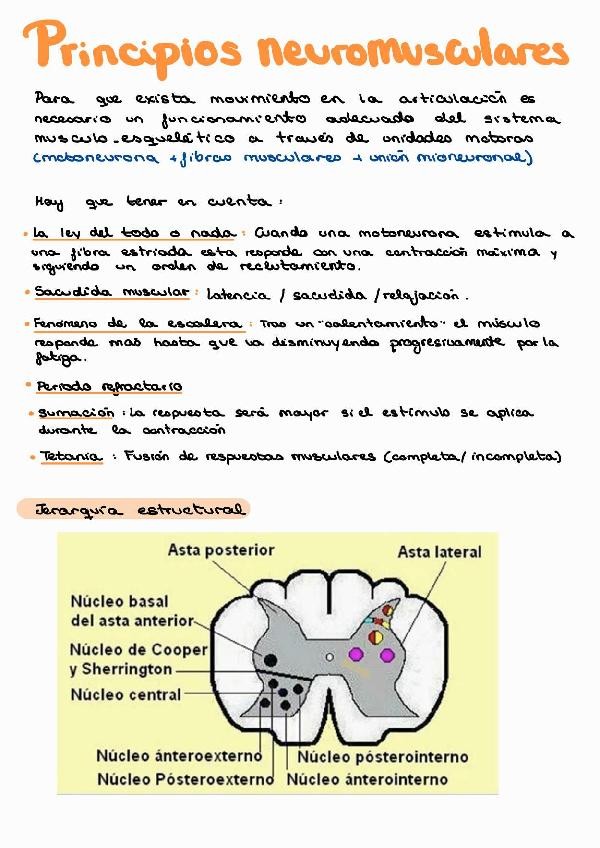 Principios neuromusculares
Para que exista movimiento en la articulación es
necesario un funcionamiento adecuado del sistema
musculo-esquelético a través de unidades motoras
(motoneurona + fibras musculares + unión mioneuronal)
Hay que tener en cuenta:
• La ley del todo o nada: Cuando una motoneurona estimula a
una fibra estriada esta responde con una contracción máxima y
siguiendo un orden de reclutamiento.
• Sacudida muscular: Latencia / sacudida / relajación.
• Fenómeno de la escalera: Tras un "calentamiento" el músculo
responde más hasta que va disminuyendo progresivamente por la
fatiga.
• Periodo refractario
• Sumación: La respuesta será mayor si el estímulo se aplica
durante la contracción
• Tetania: Fusión de respuestas musculares (completa/incompleta)
Jerarquía estructural
Asta posterior
Asta lateral
Núcleo basal
del asta anterior
Núcleo de Cooper
y Sherrington
Núcleo central
Núcleo ánteroexterno
Núcleo pósterointerno
Núcleo Pósteroexterno
Núcleo ánterointerno